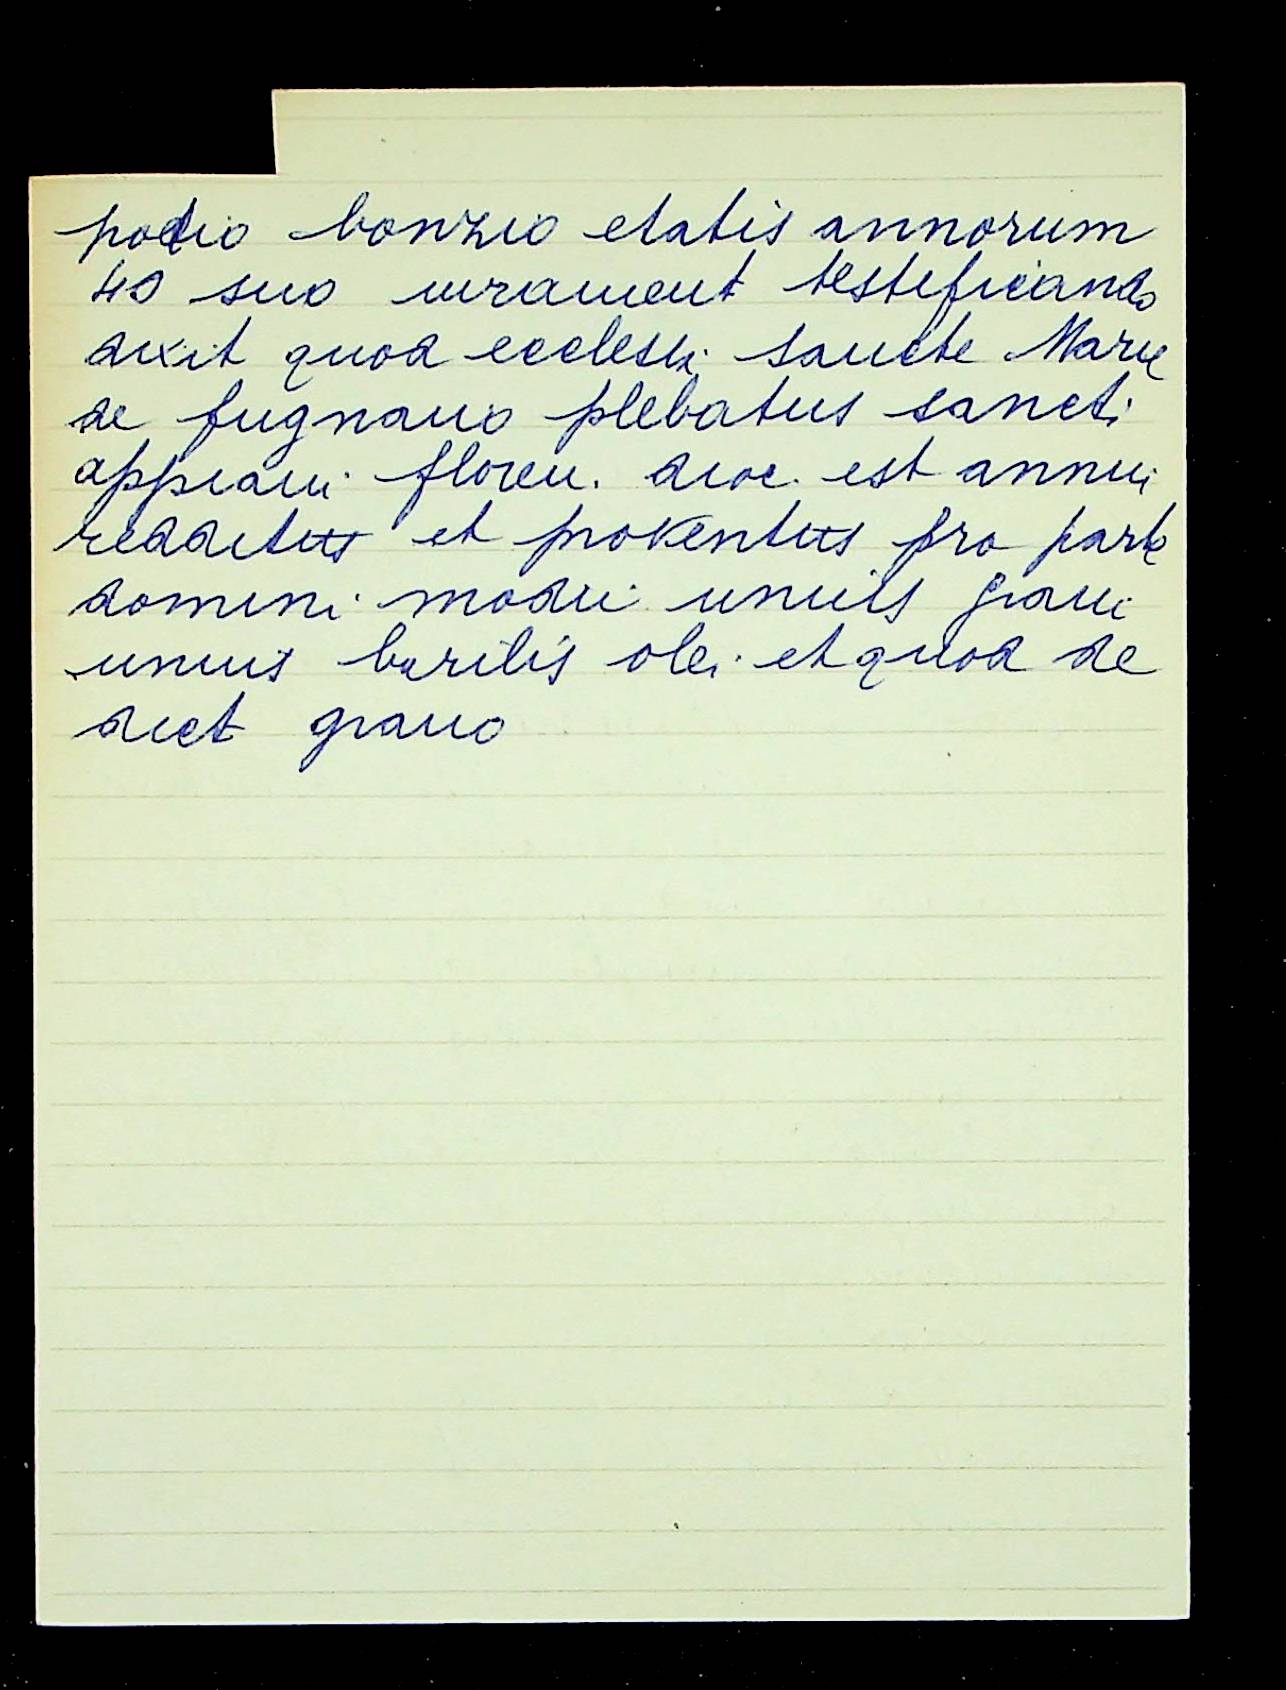 podio bonzio etatis annorum
40 suo iurament testificando
dixit quod ecclesia sancte Marie
de fugnano plebatus sancti
appiani floren. dioc. est annui
redditus et proventus pro parte
domini modii unius grani
unius barilis olei et quod de
dict grano